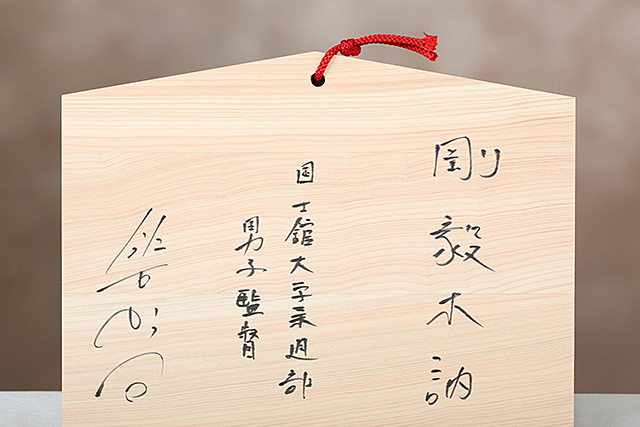 剛毅木訥
国士舘大学柔道部
男子監督